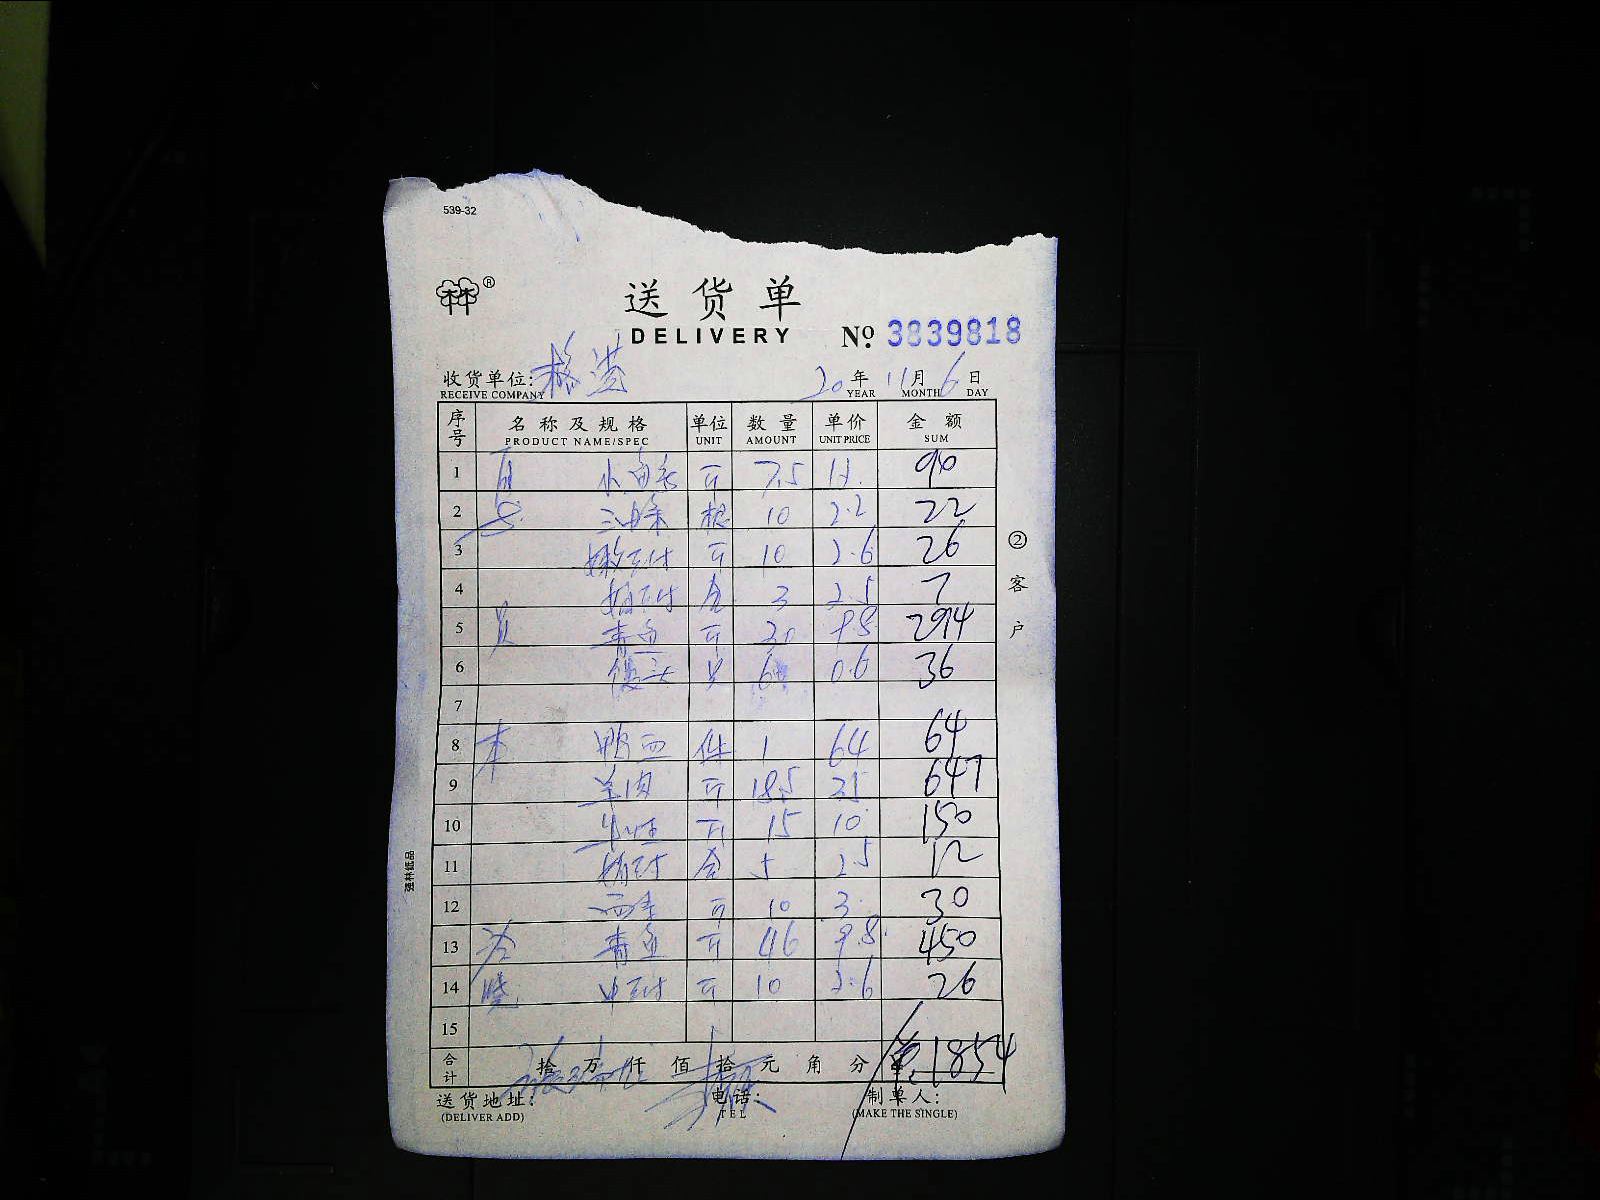 539-32
林®
送货单
DELIVERY № 3839818
收货单位: 20年11月6日
RECEIVE COMPANY YEAR MONTH DAY
序号 名称及规格 单位 数量 单价 金额
PRODUCT NAME/SPEC UNIT AMOUNT UNIT PRICE SUM
1 斤 7.5 12. 90
2 根 10 2.2 22
3 斤 10 2.6 26
4 合 3 2.5 7
5 青鱼 斤 30 9.8 294
6 馒头 只 60 0.6 36
7
8 鸭血 件 1 64 64
9 羊肉 斤 18.5 35 647
10 斤 15 10 150
11 合 5 2.5 12
12 西芹 斤 10 3 30
13 青鱼 斤 46 9.8 450
14 斤 10 2.6 26
15
合计 拾万仟佰拾元角分 1854
送货地址: 电话: 制单人:
(DELIVER ADD) TEL (MAKE THE SINGLE)
②客户
强林纸品